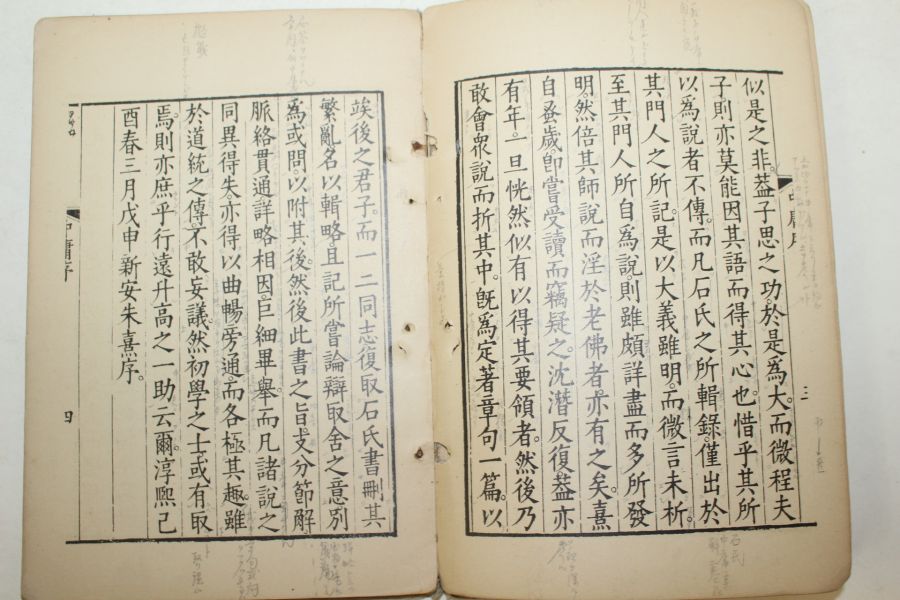 似是之非。蓋子思之功。於是爲大。而微程夫
子則亦莫能因其語而得其心也。惜乎其所
以爲說者不傳。而凡石氏之所輯錄。僅出於
其門人之所記。是以大義雖明。而微言未析。
至其門人所自爲說則雖頗詳盡而多所發
明。然倍其師說而淫於老佛者。亦有之矣。熹
自蚤歲。卽嘗受讀而竊疑之沈潛反復。蓋亦
有年。一旦恍然似有以得其要領者。然後乃
敢會衆說而折其中。旣爲定著章句一篇。以
三
竢後之君子。而一二同志復取石氏書刪其
繁亂名以輯略。且記所嘗論辯取舍之意別
爲或問。以附其後。然後此書之旨。支分節解
脈絡貫通詳略相因。巨細畢舉。而凡諸說之
同異得失。亦得以曲暢旁通而各極其趣。雖
於道統之傳不敢妄議。然初學之士。或有取
焉。則亦庶乎行遠升高之一助云爾。淳熙己
酉春三月戊申。新安朱熹序。
中庸序
四